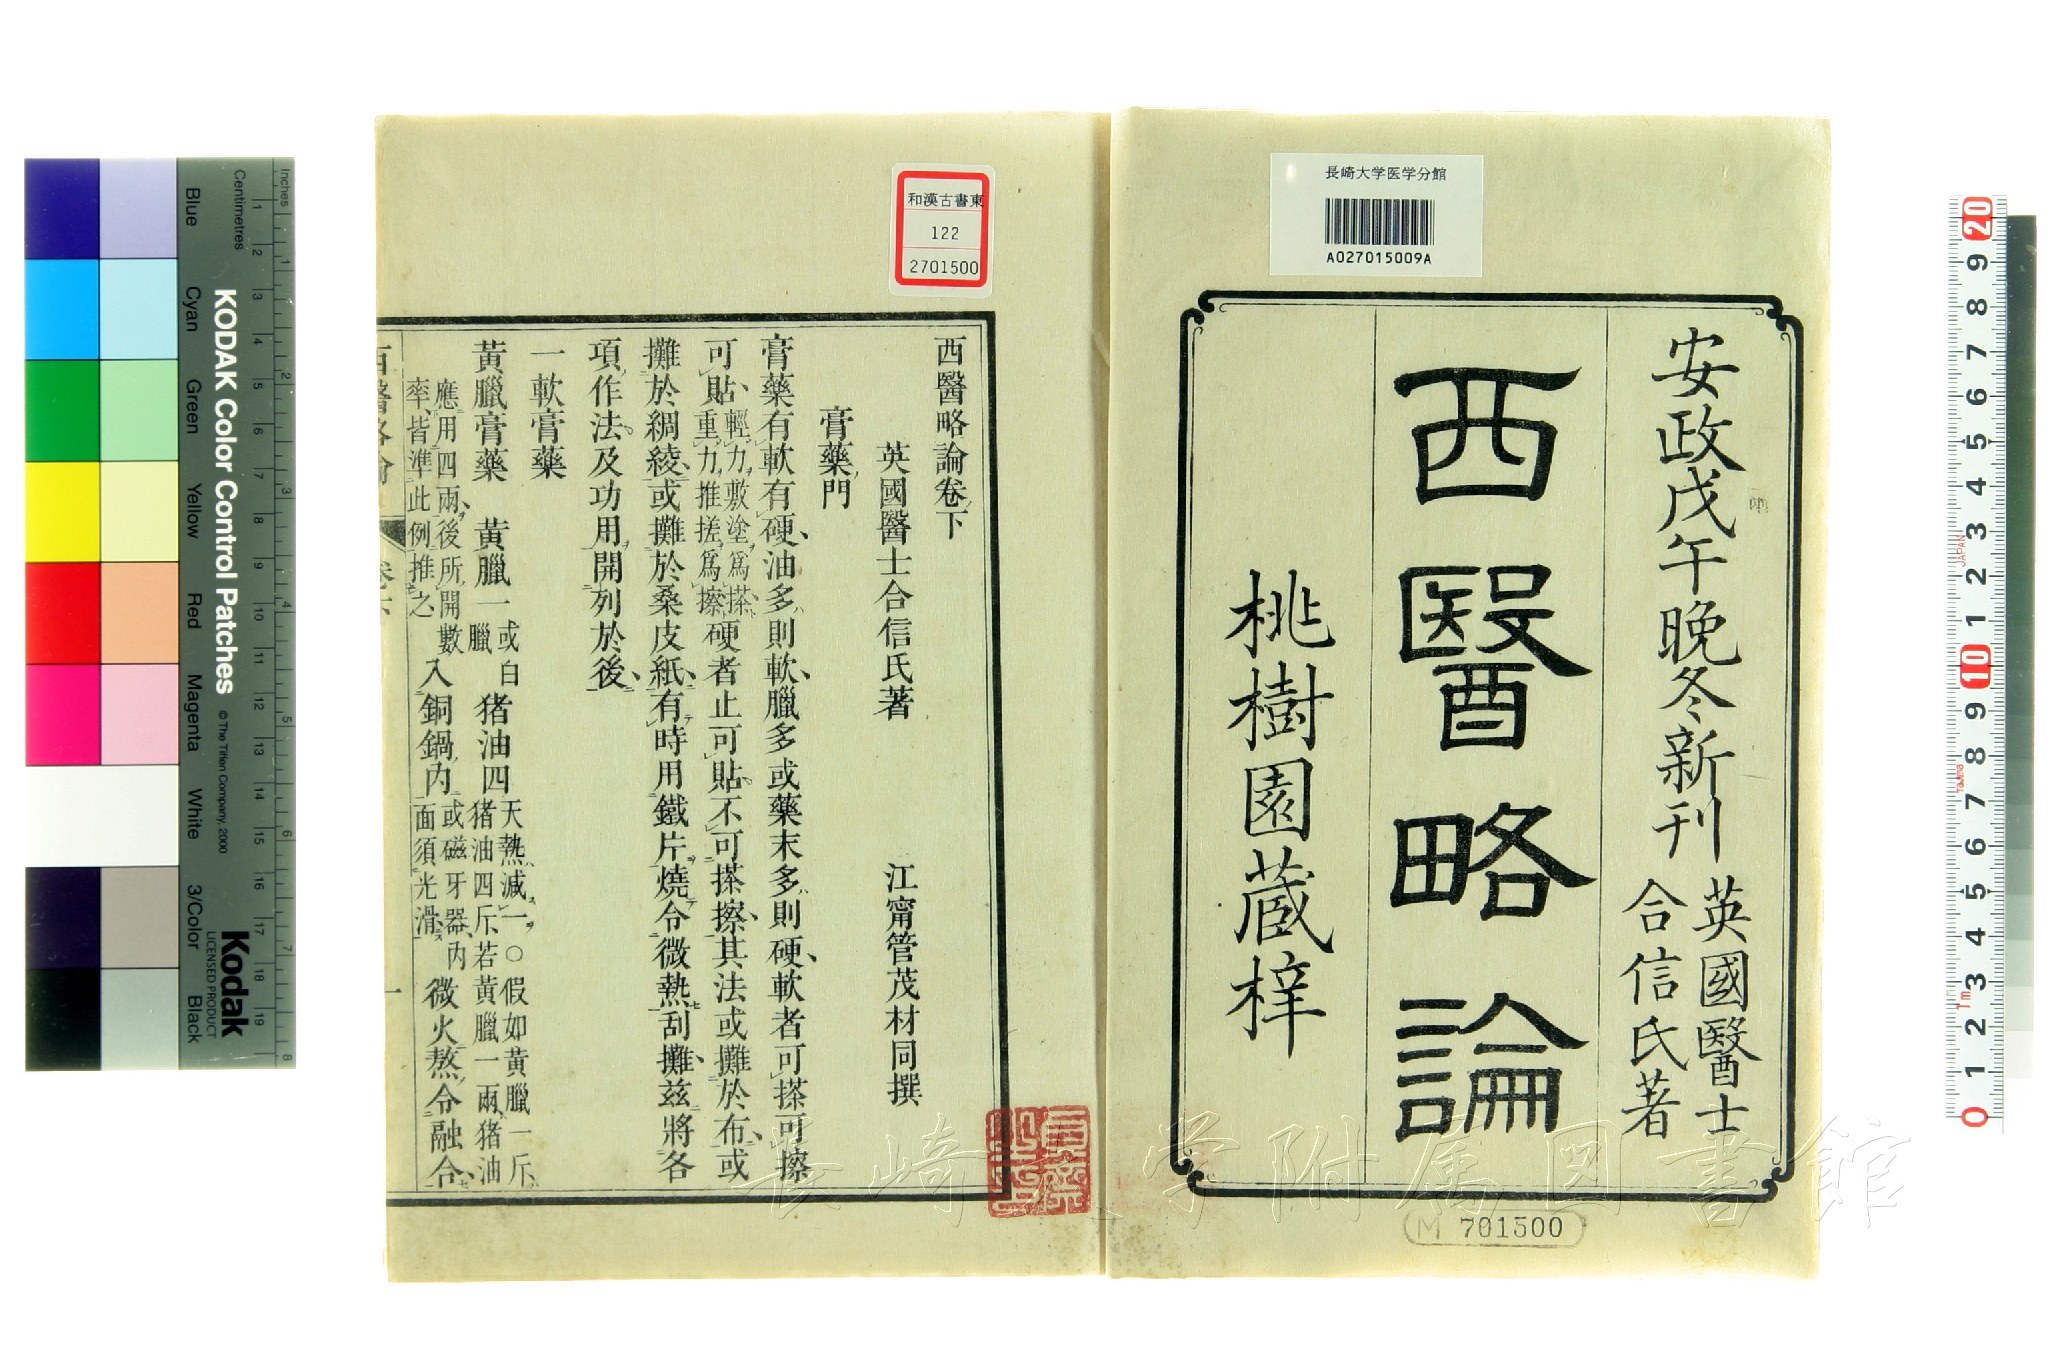 長崎大学医学分館
A027015009A
安政戊午晩冬新刊
英國醫士
合信氏著
西醫略論
桃樹園蔵梓
M 701500
和漢古書東
122
2701500
西醫略論卷下
英國醫士合信氏著 江甯管茂材同撰
膏藥門
膏藥有軟有硬油多則軟臘多或藥末多則硬軟者可搽可擦
可貼輕力敷塗爲搽重力推搓爲擦硬者止可貼不可搽擦其法或攤於布或
攤於綢綾或攤於桑皮紙有時用鐵片燒令微熱刮攤茲將各
項作法及功用開列於後
一軟膏藥
黃臘膏藥 黃臘一或白臘 猪油四天熱減一○假如黃臘一斤猪油四斤若黃臘一兩猪油
應用四兩後所開數率皆準此例推之入銅鍋內或磁牙器內面須光滑微火熬令融合
一
長崎 学附属図書館
Inches
Centimetres
Blue
Cyan
Green
Yellow
Red
Magenta
White
3/Color
Black
KODAK Color Control Patches
© The Tiffen Company, 2000
Kodak
LICENSED PRODUCT
1 2 3 4 5 6 7 8
1 2 3 4 5 6 7 8 9 10 11 12 13 14 15 16 17 18 19
20
9
8
7
6
5
4
3
2
1
10
9
8
7
6
5
4
3
2
1
0
JAPAN
1m